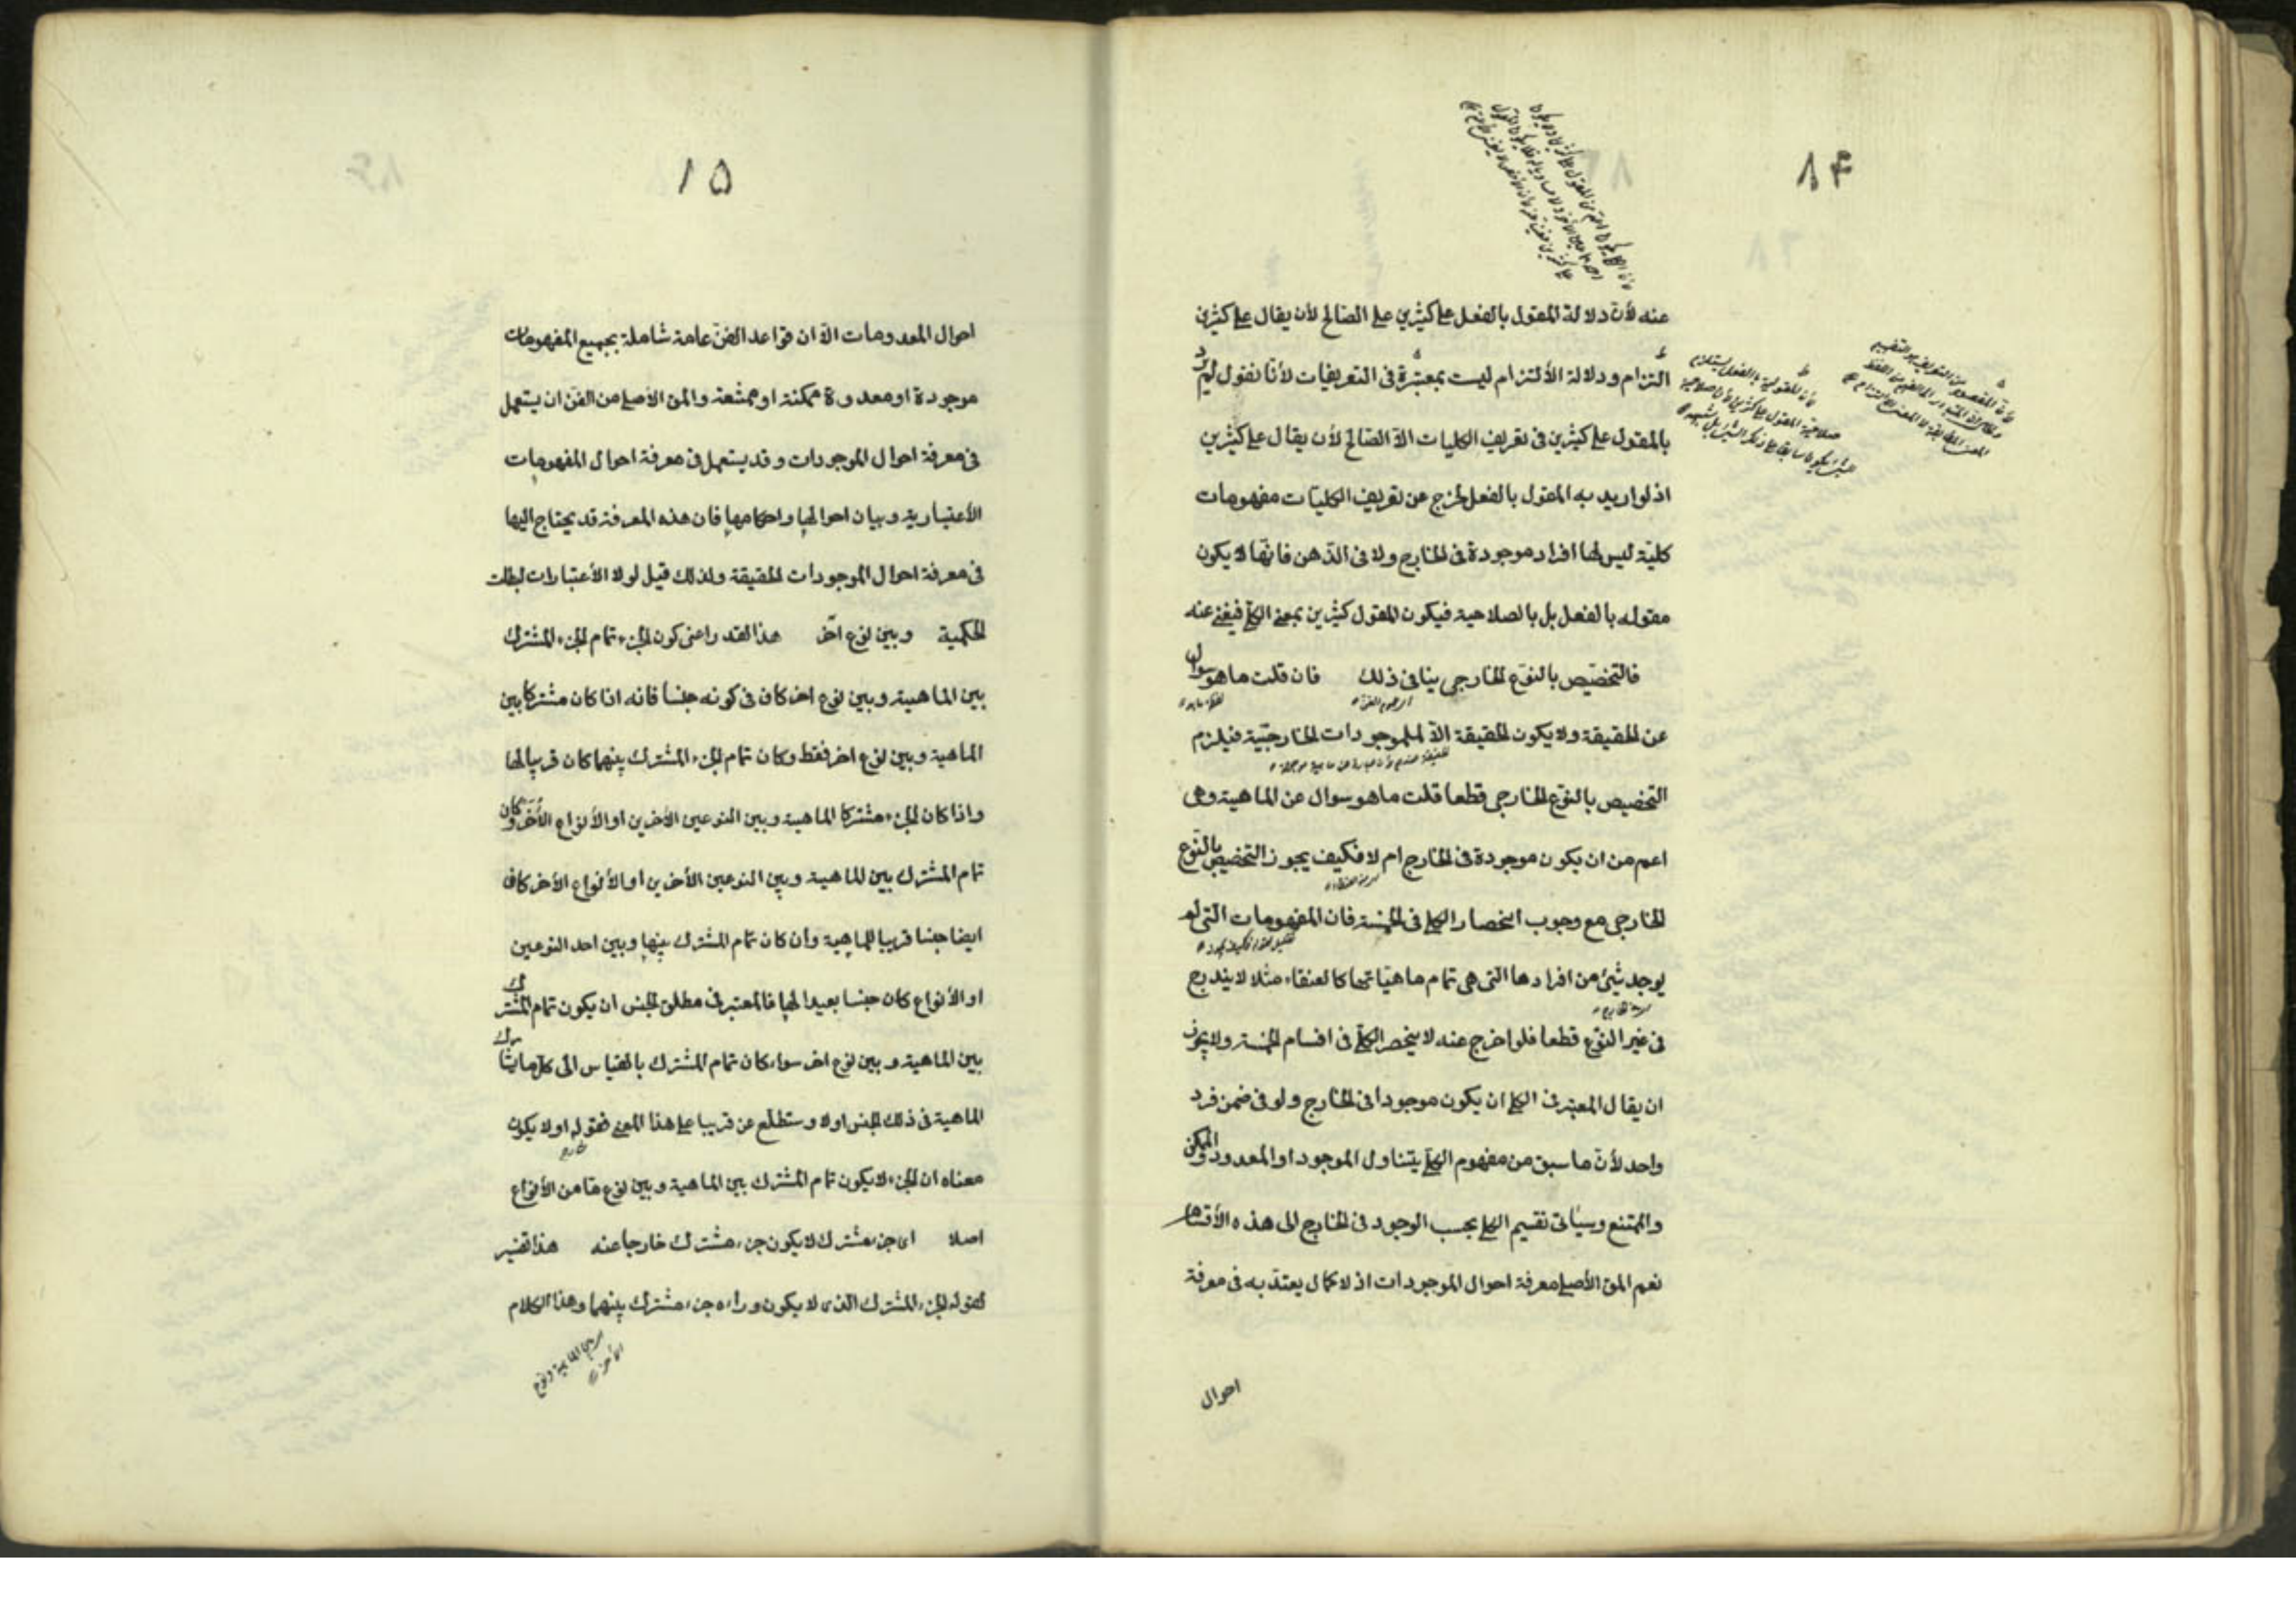 ٨٤
عنه لأن دلالة المقول بالفعل على كثيرين على الصالح لأن يقال على كثيرين
التزام ودلالة الألتزام ليست بمعتبرة فى التعريفات لأنا نقول لم يرد
بالمقول على كثيرين فى تعريف الكليات الا الصالح لأن يقال على كثيرين
اذ لو اريد به المقول بالفعل لخرج عن تعريف الكليات مفهومات
كلية ليس لها افراد موجودة فى الخارج ولا فى الذهن فانها لا يكون
مقوله بالفعل بل بالصلاحية فيكون المقول كثيرين بمعنى الكلى فيغنى عنه
فالتخصيص بالنوع الخارجى ينافى ذلك فان قلت ما هو سوال
عن الحقيقة ولا يكون الحقيقة الا للموجودات الخارجية فيلزم
التخصيص بالنوع الخارجى قطعا قلت ما هو سوال عن الماهية وهى
اعم من ان يكون موجودة فى الخارج ام لا فكيف يجوز التخصيص بالنوع
الخارجى مع وجوب انحصار الكلى فى الخمسة فان المفهومات التى لم
يوجد شئ من افرادها التى هى تمام ماهياتها كالعنقاء مثلا لا يندرج
فى غير النوع قطعا فلو اخرج عنه لا ينحصر الكلى فى اقسام الخمسة ولا يجوز
ان يقال المعتبر فى الكلى ان يكون موجودا فى الخارج ولو فى ضمن فرد
واحد لأن ما سبق من مفهوم الكلى يتناول الموجود او المعدود والممكن
والممتنع وسيأتى تقسيم الكلى بحسب الوجود فى الخارج الى هذه الأقسام
نعم المق الأصلى معرفة احوال الموجودات اذ لا كمال يعتد به فى معرفة
احوال
١٥
احوال المعدومات الا ان قواعد الفن عامة شاملة بجميع المفهومات
موجودة او معدودة ممكنة او ممتنعة والمق الأصلى من الفن ان يستعمل
فى معرفة احوال الموجودات وقد يستعمل فى معرفة احوال المفهومات
الأعتبارية وبيان احوالها واحكامها فان هذه المعرفة قد يحتاج اليها
فى معرفة احوال الموجودات الحقيقة ولذلك قيل لولا الأعتبارات لبطلت
الحكمية وبين نوع آخر هذا القدر اعنى كون الجزء تمام الجزء المشترك
بين الماهية وبين نوع اخر كاف فى كونه جنسا فانه اذا كان مشتركا بين
الماهية وبين نوع اخر فقط وكان تمام الجزء المشترك بينهما كان قريبا لها
واذا كان الجزء مشتركا الماهية وبين النوعين الأخرين او الأنواع الأخر وكان
تمام المشترك بين الماهية وبين النوعين الأخرين او الأنواع الأخر كاف
ايضا جنسا قريبا للماهية وان كان تمام المشترك بينها وبين احد النوعين
او الأنواع كان جنسا بعيدا لها فالمعتبر فى مطلق الجنس ان يكون تمام المشترك
بين الماهية وبين نوع اخر سواء كان تمام المشترك بالقياس الى كل ما يشارك
الماهية فى ذلك الجنس اولا وستطلع عن قريبا على هذا المعنى فقوله او لا يكون
معناه ان الجزء لا يكون تمام المشترك بين الماهية وبين نوع ما من الأنواع
اصلا اى جزء مشترك لا يكون جزء مشترك خارجا عنه هذا تفسير
لقوله الجزء المشترك الذى لا يكون وراءه جزء مشترك بينهما وهذا الكلام